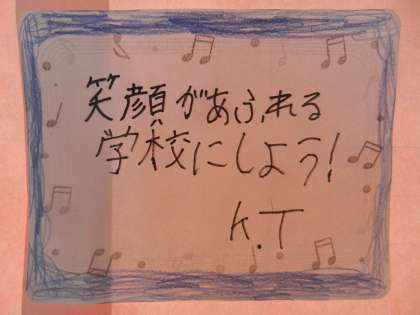 笑顔があふれる
学校にしよう!
K.T